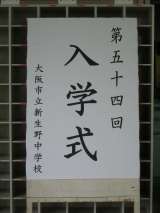 第五十四回
入学式
大阪市立新生野中学校